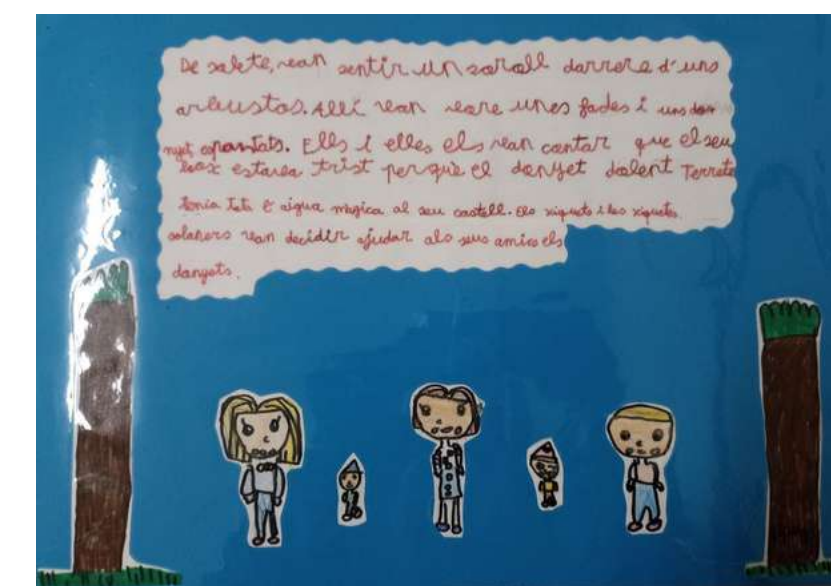 De sobte, van sentir un soroll darrere d'uns
arbustos. Allí van veure unes fades i uns don
nyet, espantats. Ells i elles els van contar que el seu
bosc estava trist perquè el donyet dolent Terrata
tenia tota l'aigua magica al seu castell. Els xiquets i les xiquetes
solaners van decidir ajudar als seus amics els
donyets.